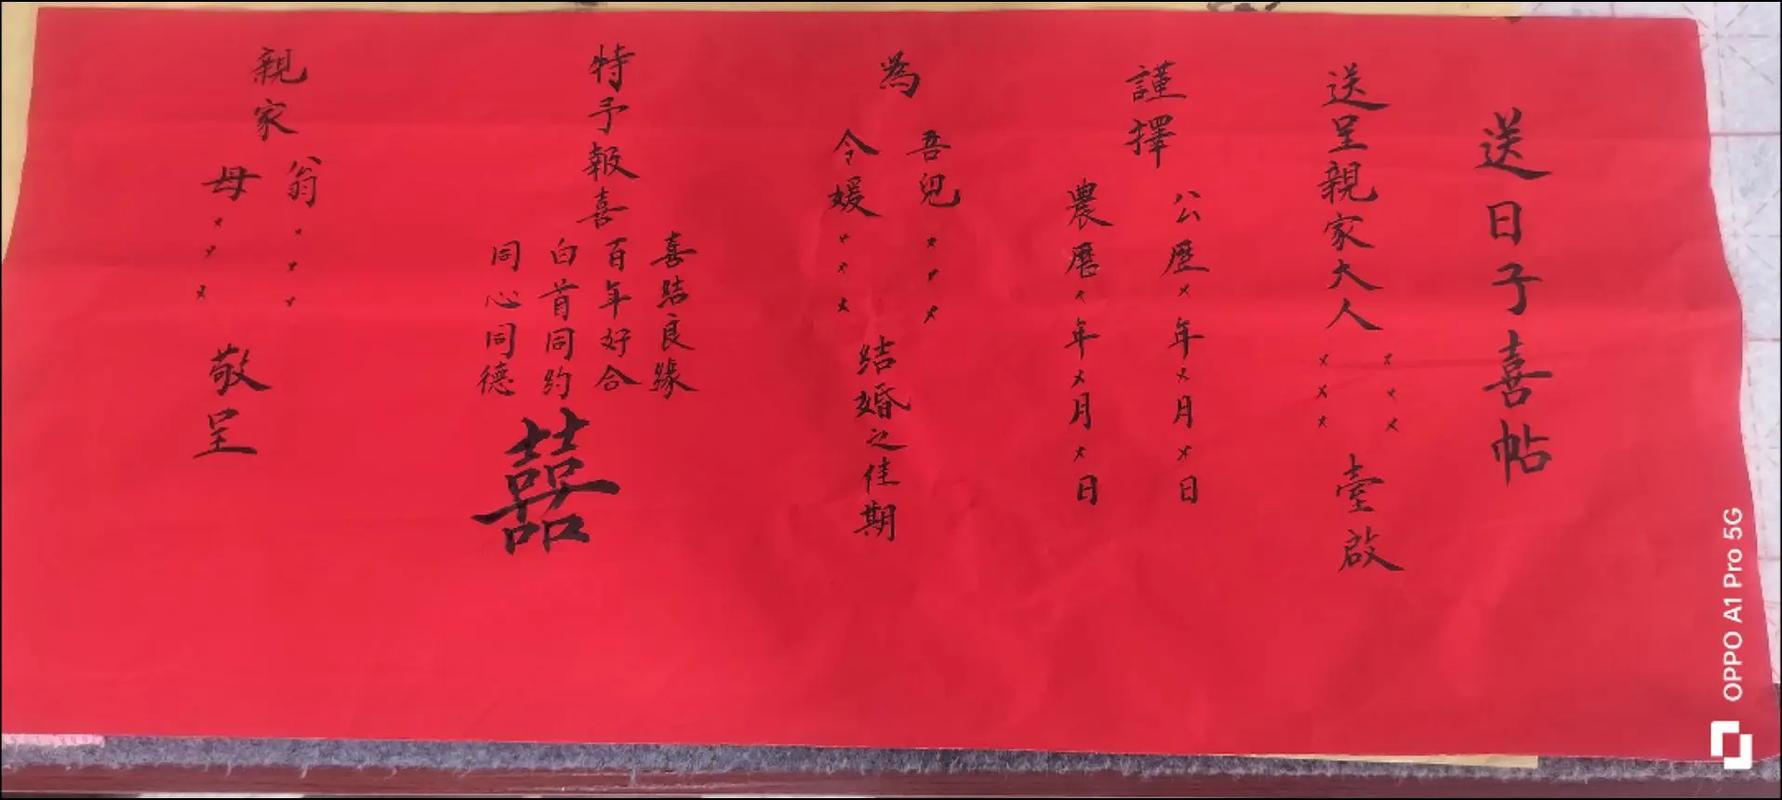 送日子喜帖
送呈親家大人××× ×××臺啟
謹擇
公歷×年×月×日
農曆×年×月×日
為
吾兒×××
令媛×××
結婚之佳期
特予報喜
喜結良緣
百年好合
白首同約
同心同德
囍
親家
翁×××
母×××
敬呈
OPPO A1 Pro 5G